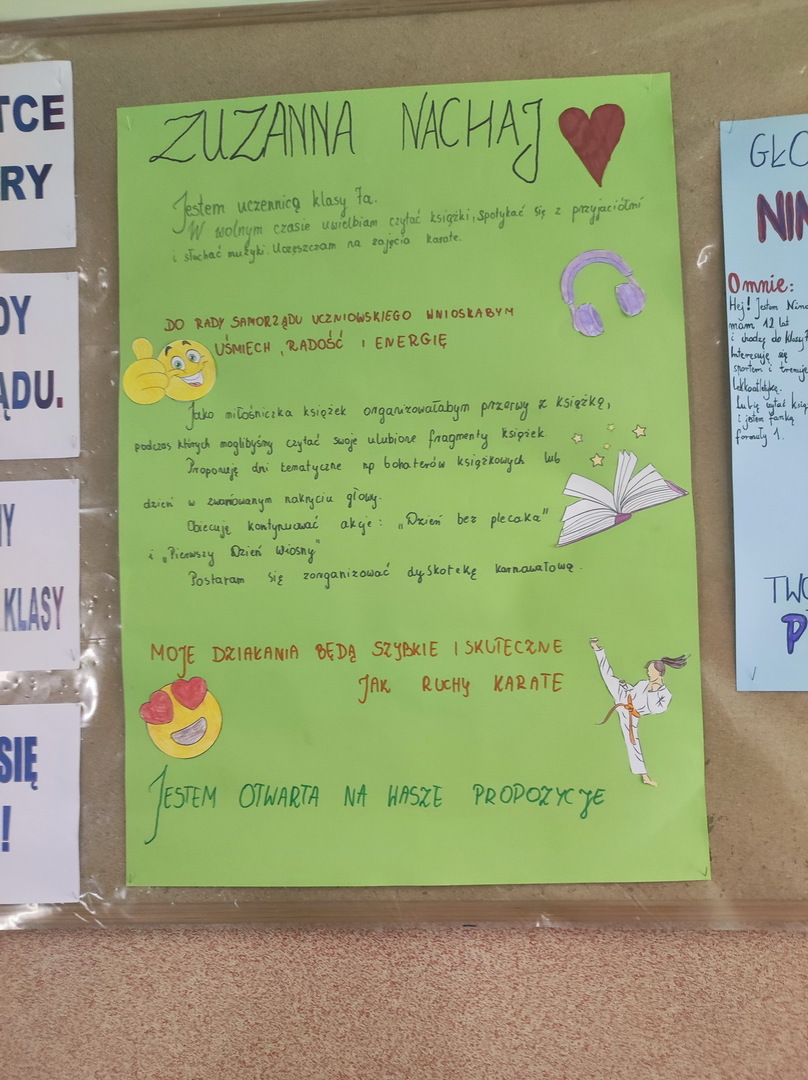 TCE
RY
DY
ĄDU.
NY
KLASY
SIĘ
!
ZUZANNA NACHAJ
Jestem uczennicą klasy 7a.
W wolnym czasie uwielbiam czytać książki, spotykać się z przyjaciółmi
i słuchać muzyki. Uczęszczam na zajęcia karate.
DO RADY SAMORZĄDU UCZNIOWSKIEGO WNIOSŁABYM
UŚMIECH, RADOŚĆ I ENERGIĘ
Jako miłośniczka książek organizowałabym przerwy z książką,
podczas których moglibyśmy czytać swoje ulubione fragmenty książek
Proponuję dni tematyczne np bohaterów książkowych lub
dzień w zwariowanym nakryciu głowy.
Obiecuję kontynuować akcje: „Dzień bez plecaka"
i „Pierwszy Dzień Wiosny"
Postaram się zorganizować dyskotekę karnawałową.
MOJE DZIAŁANIA BĘDĄ SZYBKIE I SKUTECZNE
JAK RUCHY KARATE
JESTEM OTWARTA NA WASZE PROPOZYCJE
GŁO
NIN
O mnie:
Hej! Jestem Nina
mam 12 lat
i chodzę do klasy 7
Interesuję się
sportem i trenuję
lekkoatletykę.
Lubię czytać książ
i jestem fanką
formuły 1.
TWO
P